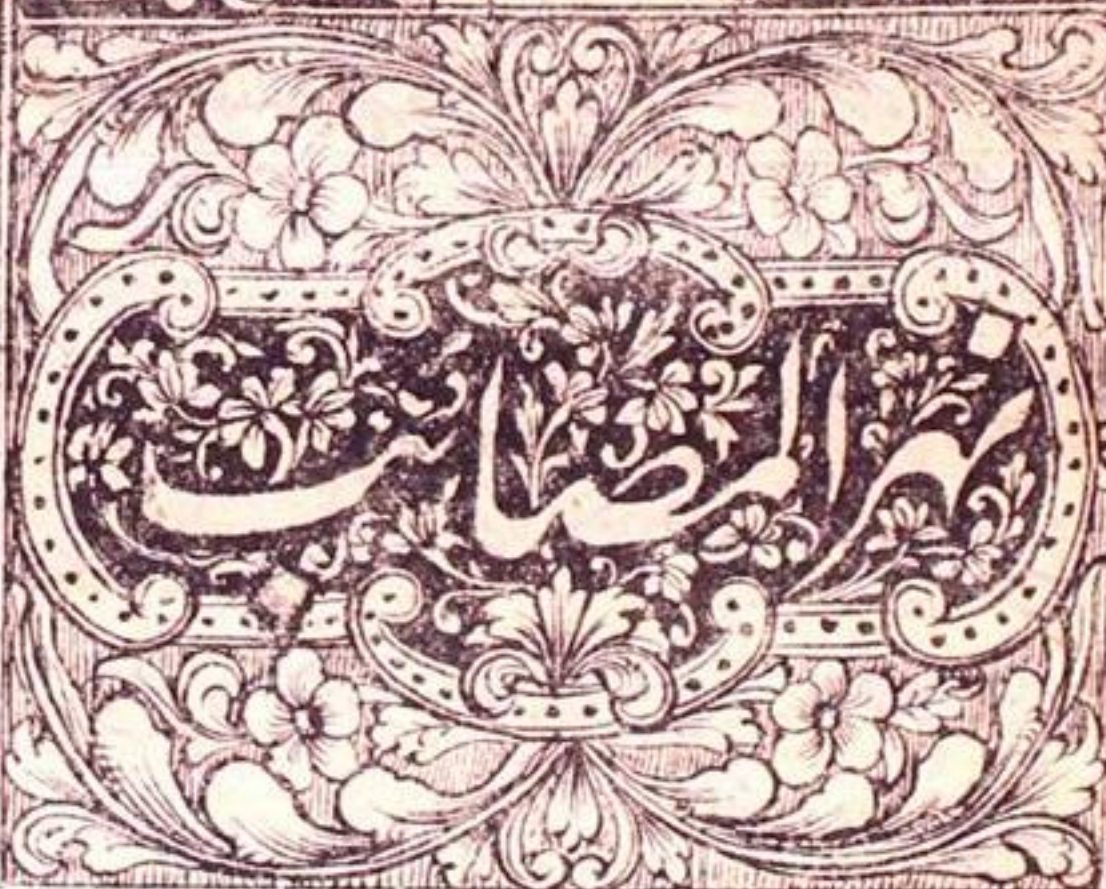 نهر المصائب